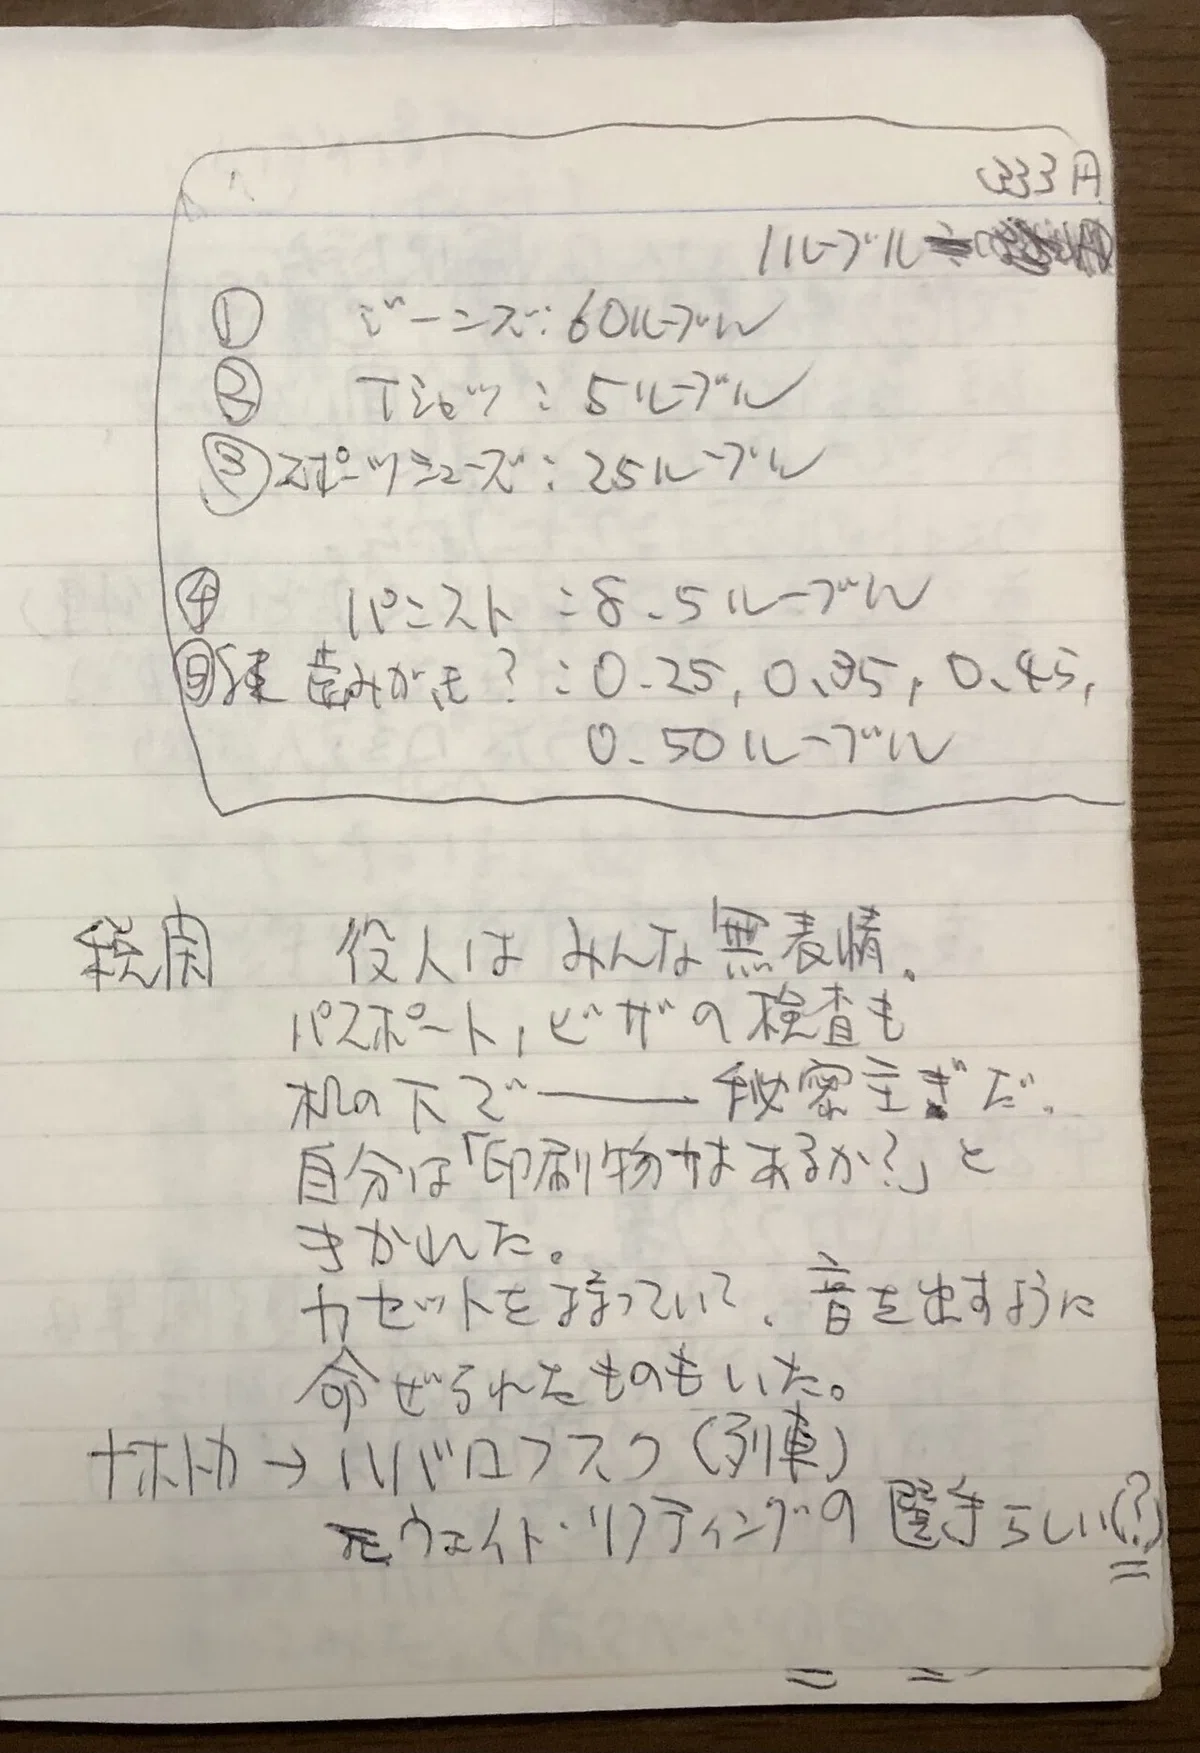 333円
1ルーブル
① ジーンズ:60ルーブル
② Tシャツ:5ルーブル
③ スポーツシューズ:25ルーブル
④ パンスト:8.5ルーブル
⑤ 歯みがき?:0.25, 0.35, 0.45,
0.50ルーブル
税関 役人はみんな無表情。
パスポート,ビザの検査も
机の下で――秘密主ぎだ。
自分は「印刷物はあるか?」と
きかれた。
カセットを持っていて、音を出すように
命ぜられたものもいた。
ナホトカ→ハバロフスク(列車)
ウェイト・リフティングの選手らしい(?)